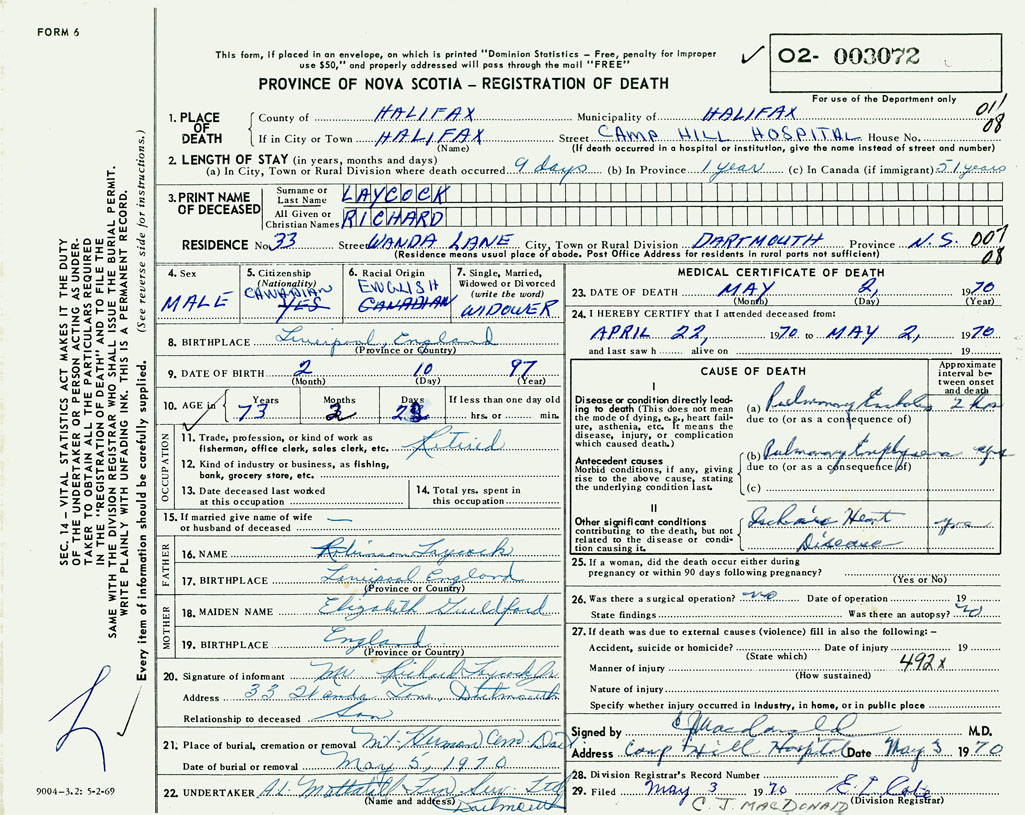 FORM 6
This form, if placed in an envelope, on which is printed "Dominion Statistics – Free, penalty for improper
use $50," and properly addressed will pass through the mail "FREE"
PROVINCE OF NOVA SCOTIA – REGISTRATION OF DEATH
✓ 02- 003072
For use of the Department only
011
08
1. PLACE OF DEATH
County of HALIFAX Municipality of HALIFAX
If in City or Town HALIFAX Street CAMP HILL HOSPITAL House No.
(Name) (If death occurred in a hospital or institution, give the name instead of street and number)
2. LENGTH OF STAY (in years, months and days)
(a) In City, Town or Rural Division where death occurred 9 days (b) In Province 1 year (c) In Canada (if immigrant) 51 years
3. PRINT NAME OF DECEASED
Surname or Last Name LAYCOCK
All Given or Christian Names RICHARD
RESIDENCE No. 33 Street WANDA LANE City, Town or Rural Division DARTMOUTH Province N.S. 007
(Residence means usual place of abode. Post Office Address for residents in rural parts not sufficient) 08
4. Sex
MALE
5. Citizenship
(Nationality)
CANADIAN
YES
6. Racial Origin
ENGLISH
CANADIAN
7. Single, Married,
Widowed or Divorced
(write the word)
WIDOWER
8. BIRTHPLACE Liverpool, England
(Province or Country)
9. DATE OF BIRTH 2 10 97
(Month) (Day) (Year)
10. AGE in
Years Months Days If less than one day old
73 2 hrs. or min.
OCCUPATION
11. Trade, profession, or kind of work as
fisherman, office clerk, sales clerk, etc. Retired
12. Kind of industry or business, as fishing,
bank, grocery store, etc.
13. Date deceased last worked
at this occupation
14. Total yrs. spent in
this occupation
15. If married give name of wife —
or husband of deceased
FATHER
16. NAME Robinson Laycock
17. BIRTHPLACE Liverpool England
(Province or Country)
MOTHER
18. MAIDEN NAME Elizabeth Guildford
19. BIRTHPLACE England
(Province or Country)
20. Signature of informant Mr Richard Laycock Jr
Address 33 Wanda Lane, Dartmouth
Relationship to deceased Son
21. Place of burial, cremation or removal Mt. Herman Cem. Dart
Date of burial or removal May 5, 1970
22. UNDERTAKER A.L. Mattatall Fun Serv. Ltd
(Name and address) Dartmouth
MEDICAL CERTIFICATE OF DEATH
23. DATE OF DEATH MAY 2, 1970
(Month) (Day) (Year)
24. I HEREBY CERTIFY that I attended deceased from:
APRIL 22, 1970 to MAY 2, 1970
and last saw h alive on 19
CAUSE OF DEATH
Approximate
interval be-
tween onset
and death
I
Disease or condition directly lead-
ing to death (This does not
mean the mode of dying, e.g., heart fail-
ure, asthenia, etc. It means the
disease, injury, or complication
which caused death.)
(a) Pulmonary Embolus 2 hrs
due to (or as a consequence of)
Antecedent causes
Morbid conditions, if any, giving
rise to the above cause, stating
the underlying condition last.
(b) Pulmonary Emphysema yrs
due to (or as a consequence of)
(c)
II
Other significant conditions
contributing to the death, but not
related to the disease or condi-
tion causing it.
Ischaemic Heart yrs
Disease
25. If a woman, did the death occur either during
pregnancy or within 90 days following pregnancy?
(Yes or No)
26. Was there a surgical operation? no Date of operation 19
State findings Was there an autopsy? No
27. If death was due to external causes (violence) fill in also the following: –
Accident, suicide or homicide? Date of injury 19
(State which)
Manner of injury 492X
(How sustained)
Nature of injury
Specify whether injury occurred in industry, in home, or in public place
Signed by C J MacDonald M.D.
Address Camp Hill Hospital Date May 3 1970
28. Division Registrar's Record Number
29. Filed May 3 1970
(Division Registrar)
C. J. MACDONALD
SEC. 14 – VITAL STATISTICS ACT MAKES IT THE DUTY
OF THE UNDERTAKER OR PERSON ACTING AS UNDER-
TAKER TO OBTAIN ALL THE PARTICULARS REQUIRED
IN THE "REGISTRATION OF DEATH" AND TO FILE THE
SAME WITH THE DIVISION REGISTRAR WHO SHALL ISSUE THE BURIAL PERMIT.
WRITE PLAINLY WITH UNFADING INK. THIS IS A PERMANENT RECORD.
Every item of information should be carefully supplied. (See reverse side for instructions.)
9004-3.2: 5-2-69